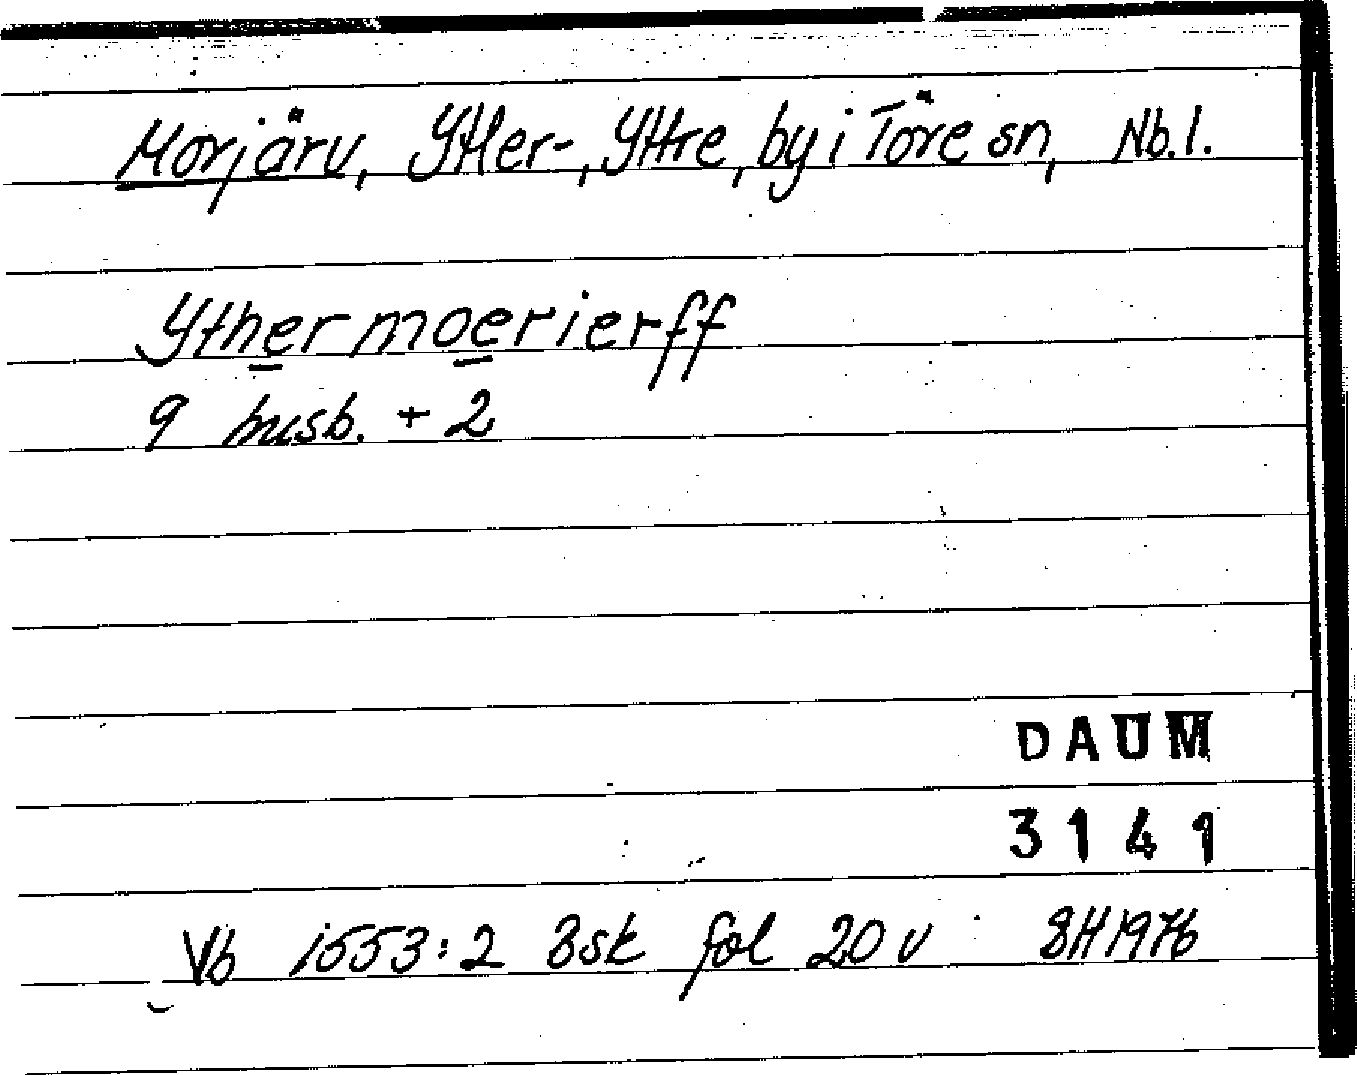 Morjärv, Ytter-, Yttre, by i Töre sn, Nb.l.
Yther moerierff
9 husb. + 2
DAUM
3141
Vb 1553:2 Bsk fol 20 v BH 1976